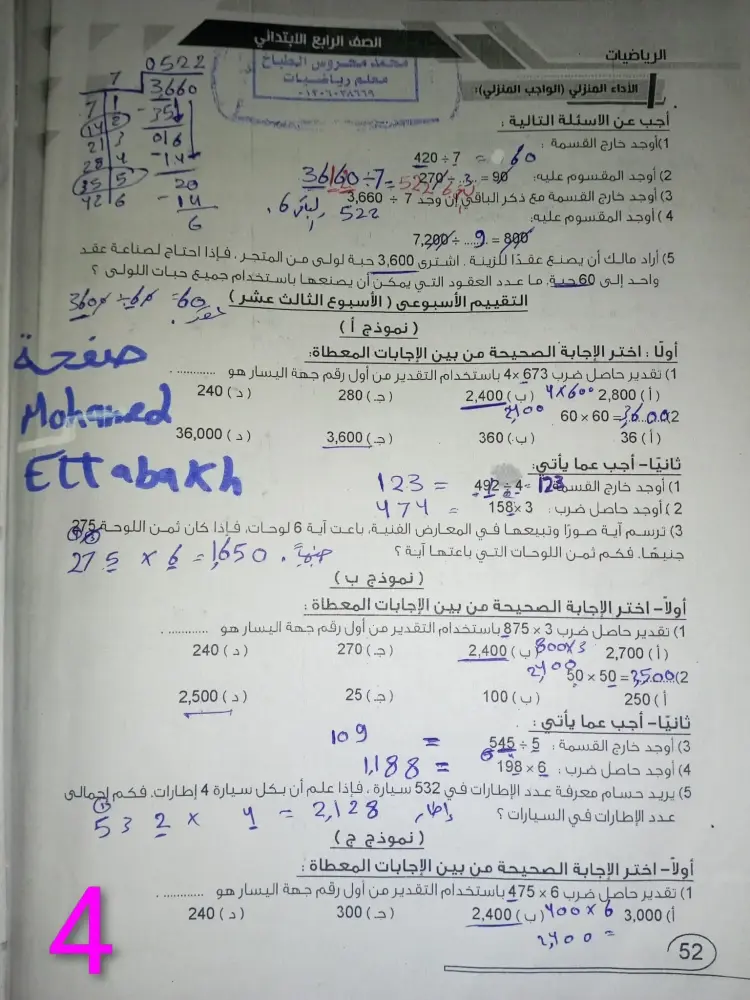 الرياضيات
الصف الرابع الابتدائي
محمد محروس الطباخ
معلم رياضيات
الأداء المنزلي (الواجب المنزلي):
7 0522
3660
- 35
016
- 14
20
- 14
6
7 1
14 2
21 3
28 4
35 5
42 6
أجب عن الاسئلة التالية :
1) أوجد خارج القسمة : 420 ÷ 7 = 60
2) أوجد المقسوم عليه: 270 ÷ ..3.. = 90
3) أوجد خارج القسمة مع ذكر الباقي إن وجد 7 ÷ 3,660
522
4 ) أوجد المقسوم عليه:
7,200 ÷ ....9 = 800
5) أراد مالك أن يصنع عقدًا للزينة . اشترى 3,600 حبة لولى من المتجر . فإذا احتاج لصناعة عقد
واحد إلى 60 حبة. ما عدد العقود التي يمكن أن يصنعها باستخدام جميع حبات اللولى ؟
3600 ÷ 60 = 60 عقد.
التقييم الأسبوعي ( الأسبوع الثالث عشر )
( نموذج أ )
أولًا : اختر الإجابة الصحيحة من بين الإجابات المعطاة:
1) تقدير حاصل ضرب 673 × 4 باستخدام التقدير من أول رقم جهة اليسار هو ............ .
(أ) 2,800 (ب) 2,400 (جـ) 280 (د) 240
4 × 600
2400
2) 60 × 60 = 3,600
(أ) 36 (ب) 360 (جـ) 3,600 (د) 36,000
صفحة
Mohamed
Ettabakh
ثانيًا- أجب عما يأتي:
1) أوجد خارج القسمة: 492 ÷ 4 = 123
2 ) أوجد حاصل ضرب : 158 × 3 = 474
3) ترسم آية صورًا وتبيعها في المعارض الفنية، باعت آية 6 لوحات، فإذا كان ثمن اللوحة 275
جنيهًا. فكم ثمن اللوحات التي باعتها آية ؟
275 × 6 = 1,650 جنيهاً.
( نموذج ب )
أولاً- اختر الإجابة الصحيحة من بين الإجابات المعطاة :
1) تقدير حاصل ضرب 3 × 875 باستخدام التقدير من أول رقم جهة اليسار هو ............ .
(أ) 2,700 (ب) 2,400 (جـ) 270 (د) 240
800 × 3
2400
2) 50 × 50 =
(أ) 250 (ب) 100 (جـ) 25 (د) 2,500
ثانيًا- أجب عما يأتي :
3) أوجد خارج القسمة : 545 ÷ 5 = 109
4) أوجد حاصل ضرب : 198 × 6 = 1,188
5) يريد حسام معرفة عدد الإطارات في 532 سيارة ، فإذا علم أن بكل سيارة 4 إطارات. فكم إجمالي
عدد الإطارات في السيارات ؟
532 × 4 = 2,128 إطار
( نموذج ج )
أولاً- اختر الإجابة الصحيحة من بين الإجابات المعطاة :
1) تقدير حاصل ضرب 6 × 475 باستخدام التقدير من أول رقم جهة اليسار هو ............ .
أ) 3,000 (ب) 2,400 (جـ) 300 (د) 240
400 × 6
2,400 =
4
52